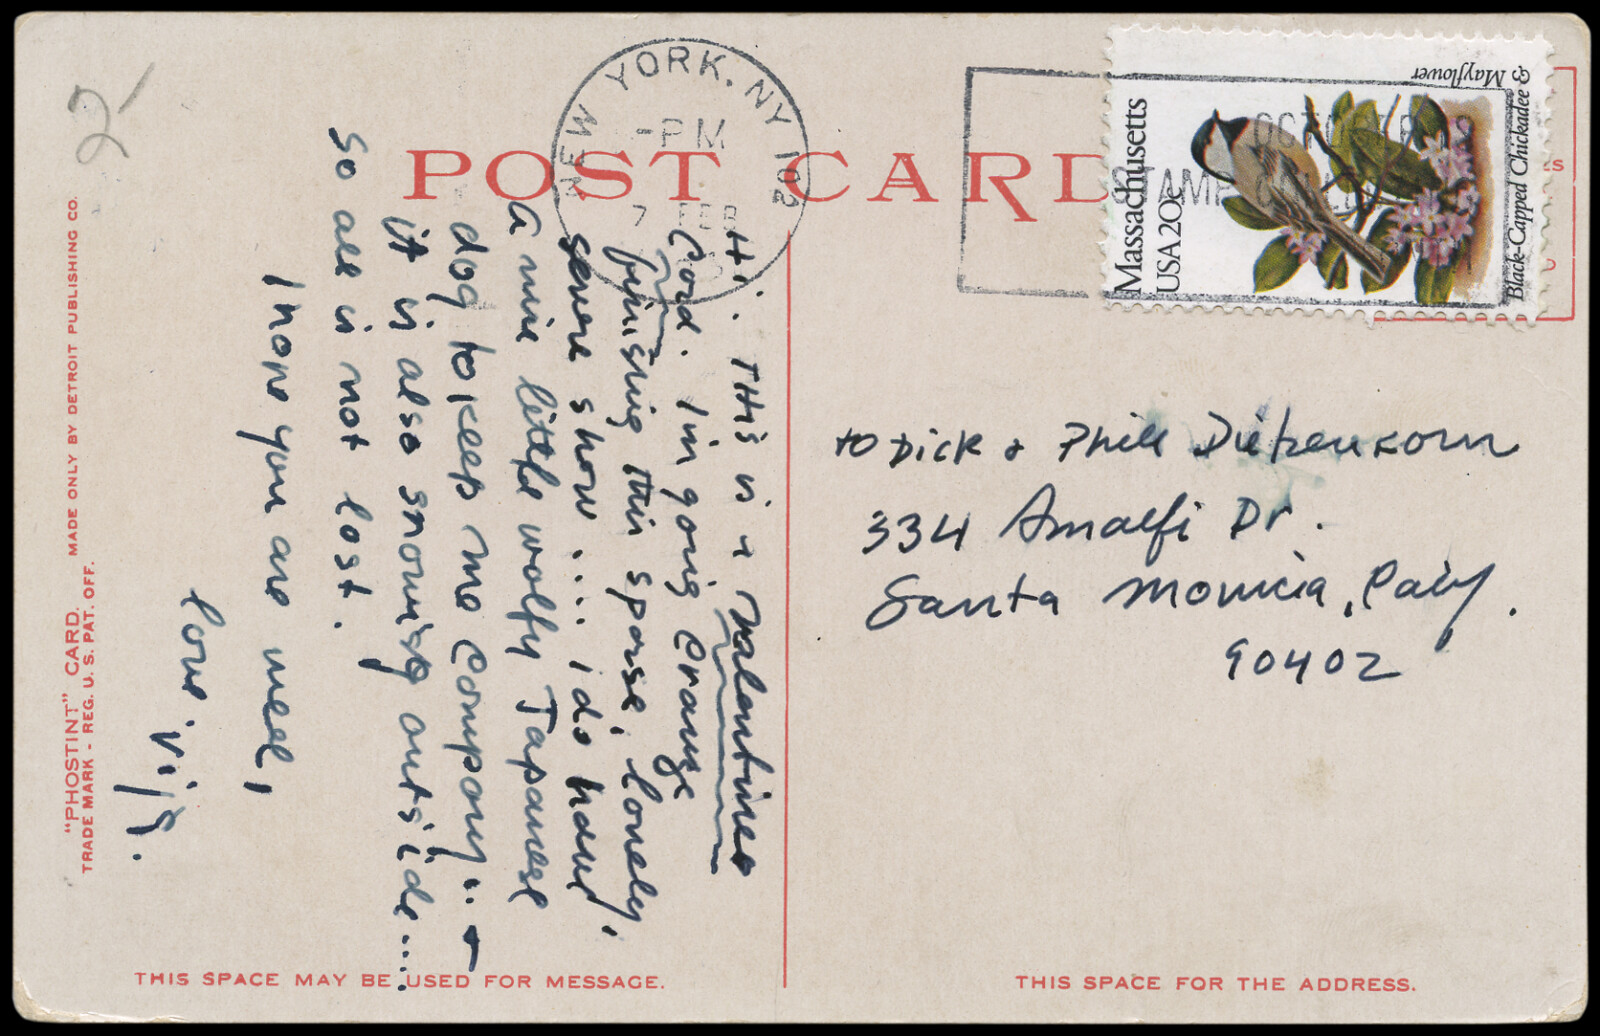 POST CARD
2-
"PHOSTINT" CARD. MADE ONLY BY DETROIT PUBLISHING CO.
TRADE MARK - REG. U. S. PAT. OFF.
Hi. THis is a Valentines
Card. I'm going Crange
finishing this sparse, lonely,
severe show .... i do have
a nice little wolfy Japanese
dog to keep me company.. +
it is also snowing outside....
So all is not lost.
I hope you are well,
love, Vija.
THIS SPACE MAY BE USED FOR MESSAGE.
NEW YORK, NY 102
PM
7 FEB
OCTOBER
STAMP
Massachusetts
USA 20c
Black-Capped Chickadee &
Mayflower
to Dick & Phill Diebenkorn
334 Amalfi Dr.
Santa Monicia, Calif.
90402
THIS SPACE FOR THE ADDRESS.